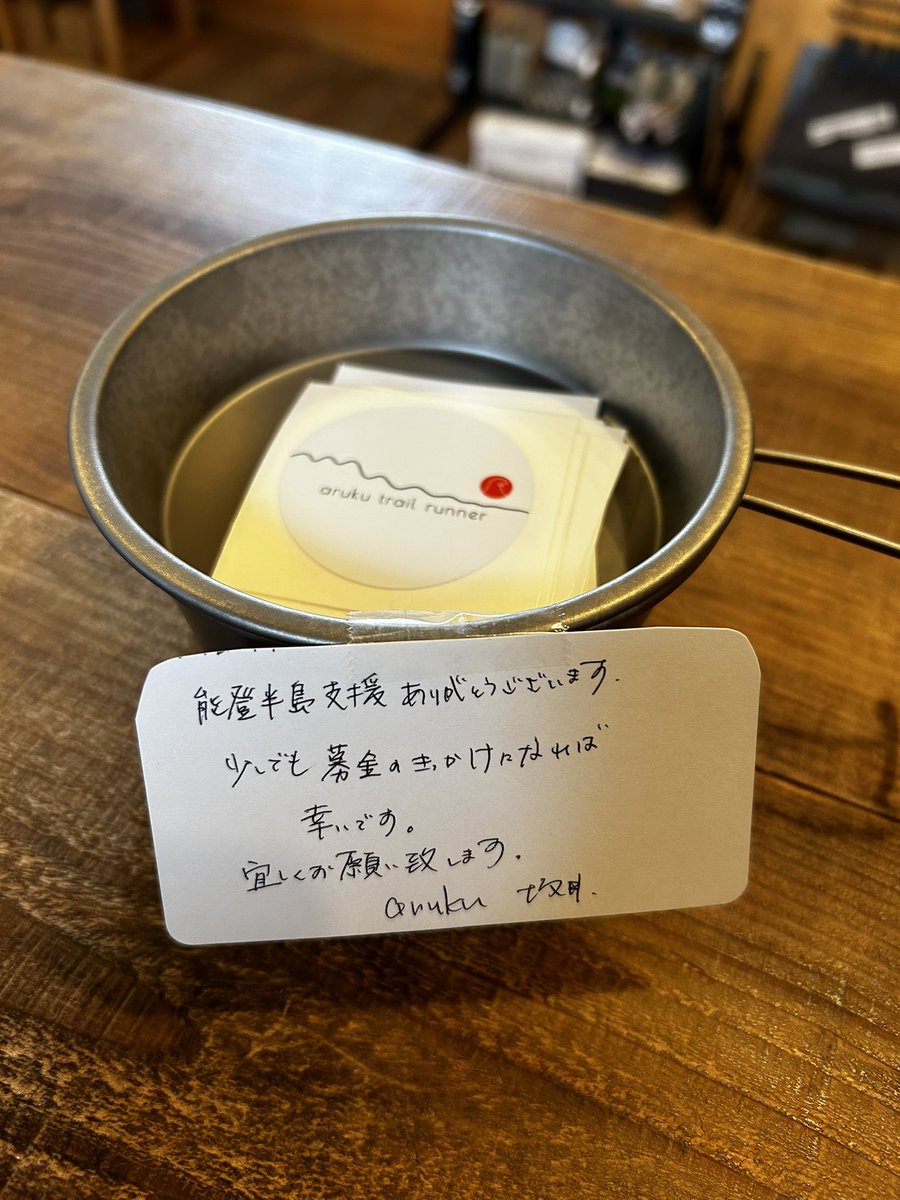 aruku trail runner
能登半島支援 ありがとうございます.
少しでも 募金のきっかけになれば
幸いです。
宜しくお願い致します.
aruku